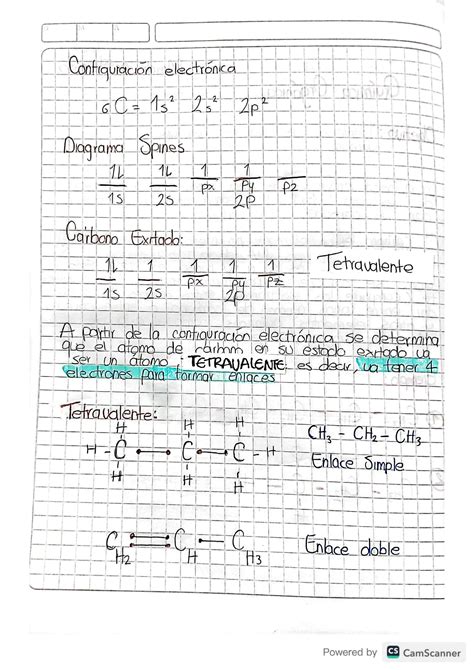 Configuración electrónica
₆C = 1s² 2s² 2p²
Diagrama Spines
1L 1L 1 1
1s 2s px py pz
2p
Carbono Exitado:
1L 1 1 1 1 Tetravalente
1s 2s px py pz
2p
A partir de la configuración electrónica se determina
que el atomo de carbono en su estado exitado va
ser un atomo: TETRAVALENTE. es decir, va tener 4
electrones para formar enlaces
Tetravalente:
H H H
H - C C C - H
H H H
CH₃ - CH₂ - CH₃
Enlace Simple
CH2 CH CH3
Enlace doble
Powered by CS CamScanner